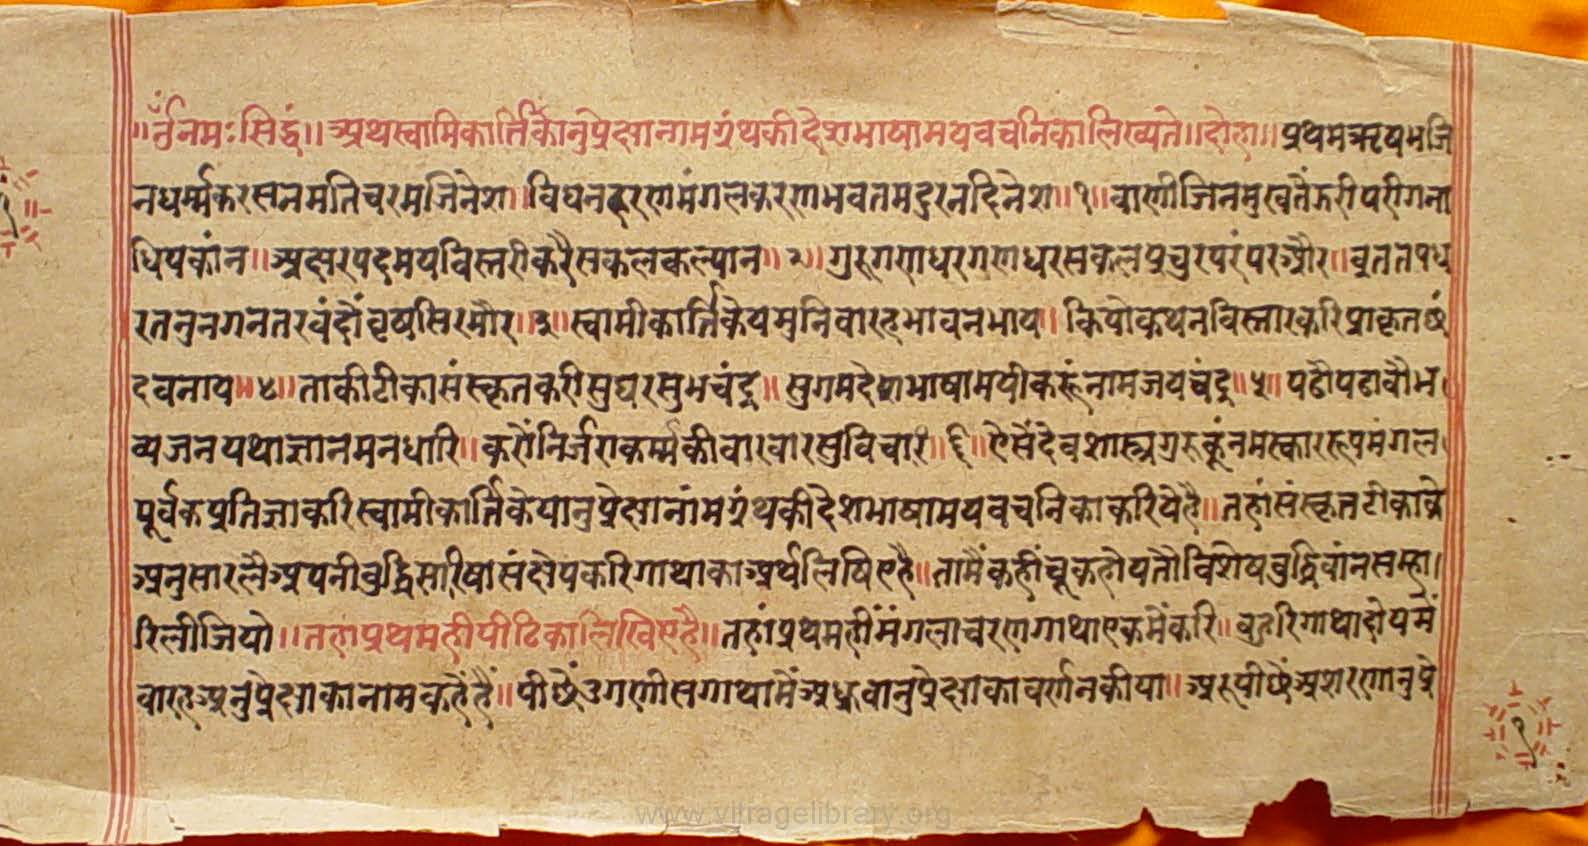 ॥ॐ नमःसिद्धं॥ अथस्वामिकार्तिकानुप्रेक्षानामग्रंथकीदेशभाषामयवचनिकालिख्यते॥दोहा॥ प्रथमऋषभजि
नधर्म्मकरसनमतिचरमजिनेश॥ विघनहरणमंगलकरणभवतमदुरनदिनेश॥१॥ वाणीजिनमुखतैंऊरीपरीगना
धिपकांन॥ अक्षरपदमयविस्तरीकरैसकलकल्यान॥२॥ गुरुगणधरगणधरसकलप्रचुरपरंपरऔर॥ व्रततपध
रतनुनगनतरवंदौंवृषसिरमौर॥३॥ स्वामीकार्तिकेयमुनिवारहभावनभाय॥ कियोकथनविस्तारकरिप्राकृतछं
दवनाय॥४॥ ताकीटीकासंस्कृतकरीसुघरसुभचंद्र॥ सुगमदेशभाषामयीकरूंनामजयचंद्र॥५॥ पढौपढावौभ
व्यजनयथाज्ञानमनधारि॥ करौंनिर्जराकर्म्मकीवारवारसुविचारि॥६॥ ऐसैंदेवशास्त्रगुरुकूंनमस्काररूपमंगल
पूर्वकप्रतिज्ञाकरिस्वामीकार्तिकेयानुप्रेक्षानांमग्रंथकीदेशभाषामयवचनिकाकरियेहै॥ तहांसंस्कृतटीकाके
अनुसारलैअपनीबुद्धिसारिषासंक्षेपकरिगाथाकाअर्थलिषिएहै॥ तामैंकहींचूकहोयतौविशेषबुद्धिवांनसम्हा
रिलीजियो॥ तहांप्रथमहीपीठिकालिखिएहै॥ तहांप्रथमहींमंगलाचरणगाथाएकमेंकरि॥ बहुरिगाथादोयमें
वारहअनुप्रेक्षाकानामकहेंहैं॥ पीछैंउगणीसगाथामेंअध्रुवानुप्रेक्षाकावर्णनकीया॥ अरुपीछैंअशरणानुप्रे
www.vitragelibrary.org